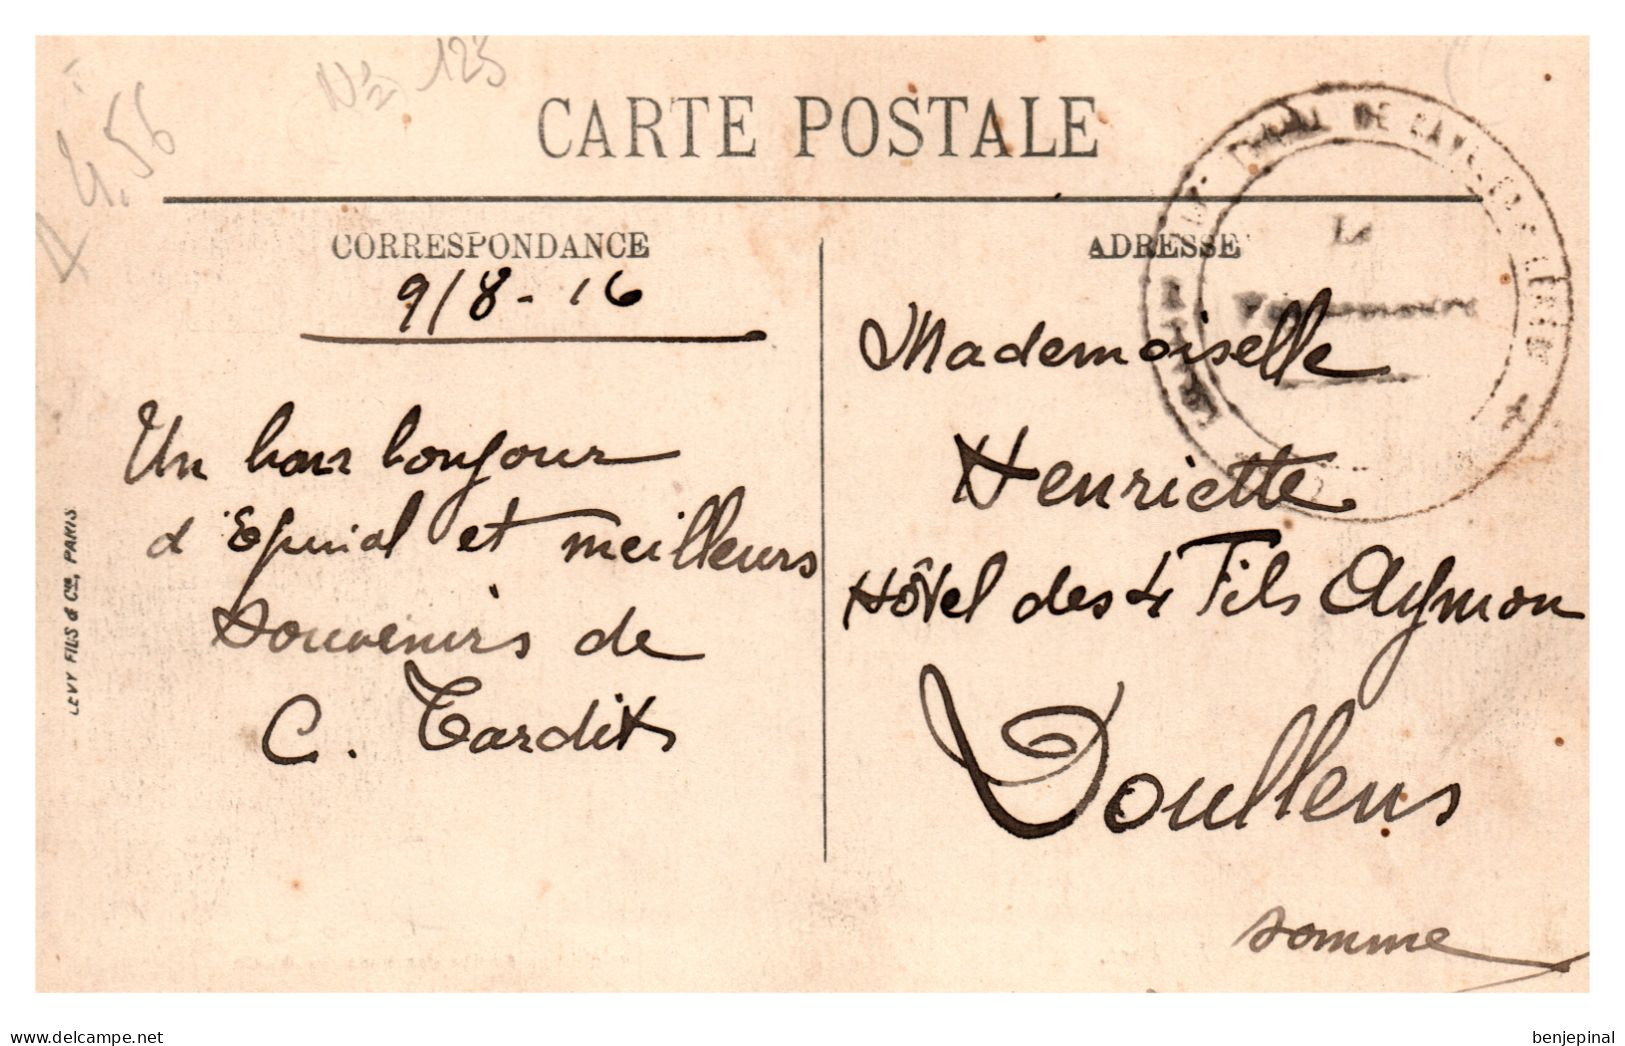 4.56
123
CARTE POSTALE
CORRESPONDANCE
9/8-16
Un bon bonjour
d'Epinal et meilleurs
souvenirs de
C. Tardits
LEVY FILS & Cie, PARIS
ADRESSE
Mademoiselle
Henriette
Hôtel des 4 Fils Aymon
Doullens
somme
DE
Le
delcampe.net
benjepinal